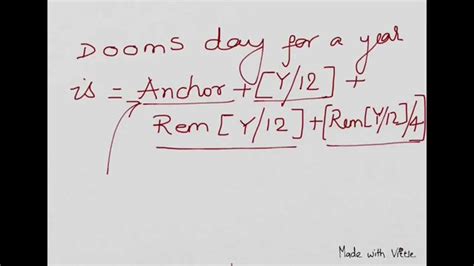 Dooms day for a year
is = Anchor + [Y/12] +
Rem [Y/12] + [Rem[Y/12]/4]
Made with